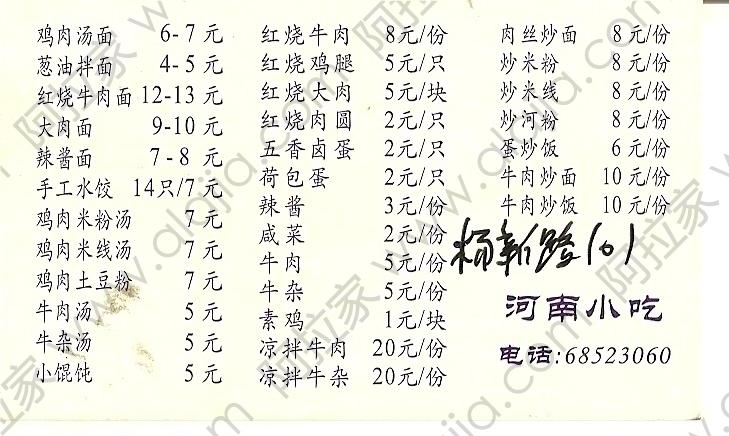 鸡肉汤面 6-7 元
葱油拌面 4-5 元
红烧牛肉面 12-13 元
大肉面 9-10 元
辣酱面 7-8 元
手工水饺 14只/7 元
鸡肉米粉汤 7 元
鸡肉米线汤 7 元
鸡肉土豆粉 7 元
牛肉汤 5 元
牛杂汤 5 元
小馄饨 5 元
红烧牛肉 8元/份
红烧鸡腿 5元/只
红烧大肉 5元/块
红烧肉圆 2元/只
五香卤蛋 2元/只
荷包蛋 2元/只
辣酱 3元/份
咸菜 2元/份
牛肉 5元/份
牛杂 5元/份
素鸡 1元/块
凉拌牛肉 20元/份
凉拌牛杂 20元/份
肉丝炒面 8 元/份
炒米粉 8 元/份
炒米线 8 元/份
炒河粉 8 元/份
蛋炒饭 6 元/份
牛肉炒面 10 元/份
牛肉炒饭 10 元/份
杨新路101
河南小吃
电话:68523060
阿拉家 www.alajia.com